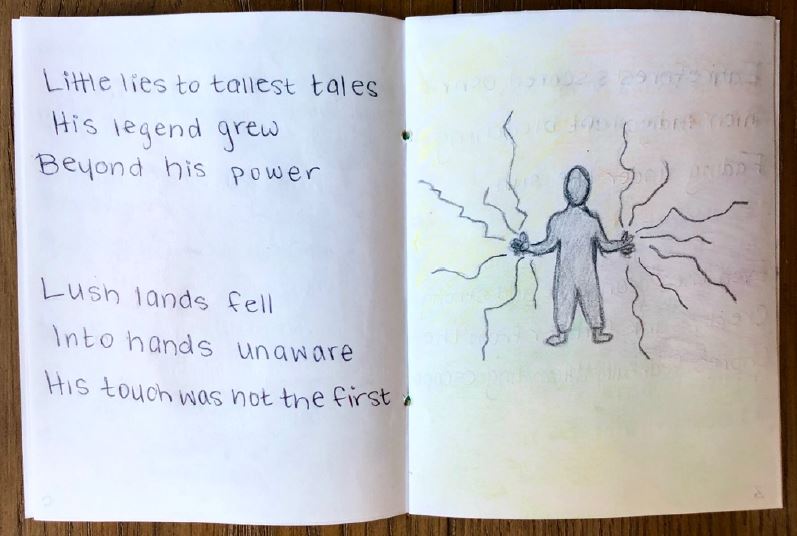 Little lies to tallest tales
His legend grew
Beyond his power
Lush lands fell
Into hands unaware
His touch was not the first